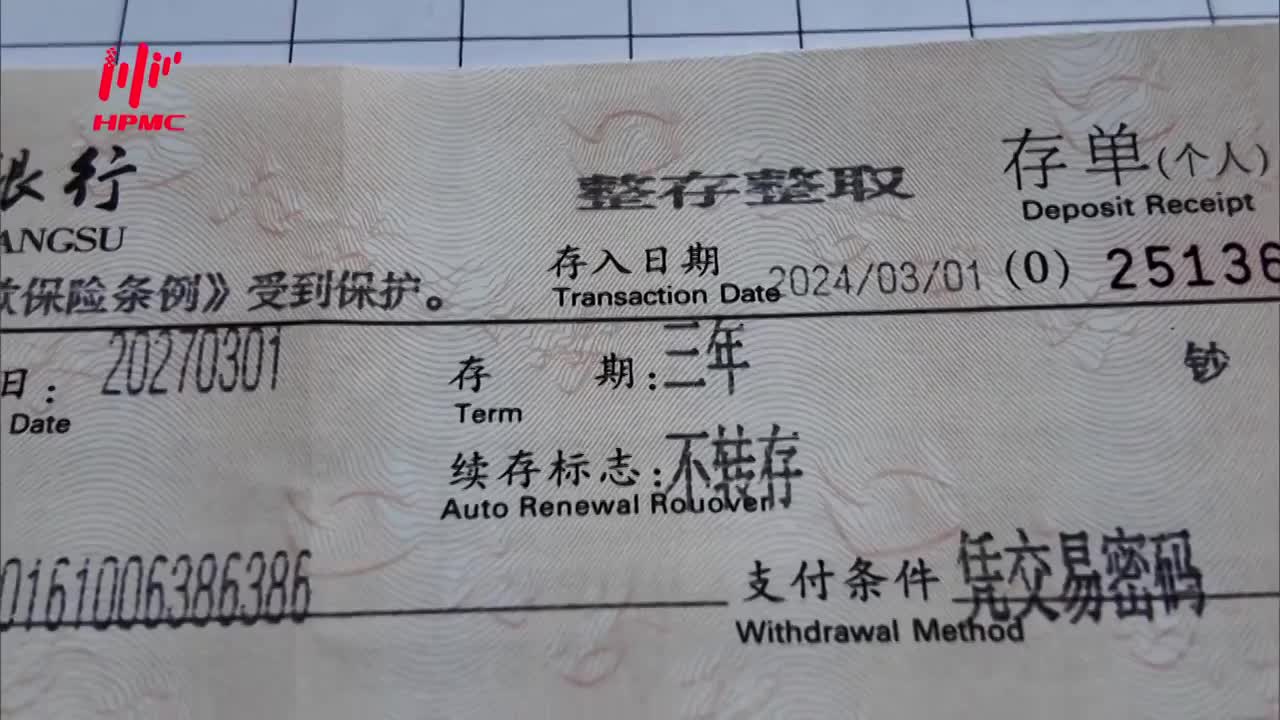 HPMC
银行
整存整取
存单(个人)
Deposit Receipt
ANGSU
款保险条例》受到保护。
存入日期
Transaction Date 2024/03/01 (0) 25136
日: 20270301
Date
存 期:三年
Term
钞
续存标志:不转存
Auto Renewal Rouover
0161006386386
支付条件 凭交易密码
Withdrawal Method